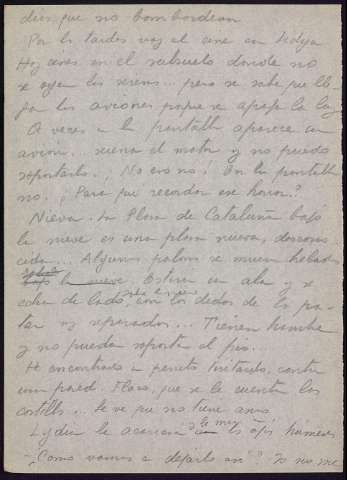 dias que no bombardean
Por la tarde voy al cine con Lidya
Hay cines en el subsuelo donde no
se oyen las sirenas... pero se sabe que lle-
gan los aviones porque se apaga la luz
A veces en la pantalla aparece un
avion... suena el motor y no puedo
soportarlo. ¡No eso no! En la pantalla
no. ¿Para que recordar ese horror?
Nieva. La Plaza de Cataluña bajo
la nieve es una plaza nueva, descono-
cida... Algunas palomas se mueren heladas
sobre la nieve. Estiran un ala y se
echan de lado, con los dedos de la pa-
ta muy separados... Tienen hambre
y no pueden soportar el frio...
He encontrado un perrito tiritando, contra
una pared. Flaco, que se le cuentan las
costillas... Se ve que no tiene amo
Lydia le acaricia y le mira los ojos húmedos
-¿Como vamos a dejarlo asi? Yo no, me